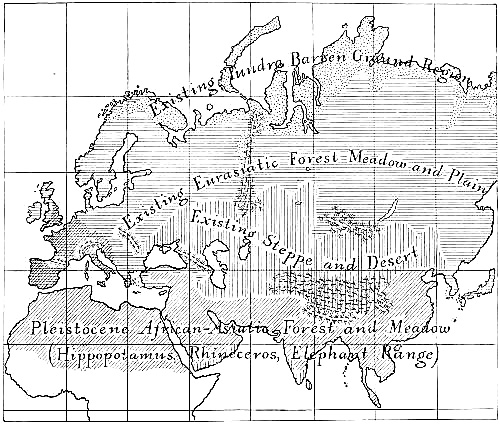 Existing Tundra Barren Ground Region
Existing Eurasiatic Forest-Meadow and Plain
Existing Steppe and Desert
Pleistocene African-Asiatic Forest and Meadow
(Hippopotamus, Rhineceros, Elephant Range)